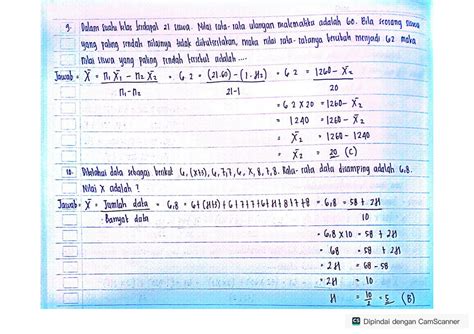 9. Dalam suatu kelas terdapat 21 siswa. Nilai rata-rata ulangan matematika adalah 60. Bila seorang siswa
yang paling rendah nilainya tidak diikutsertakan, maka nilai rata-ratanya berubah menjadi 62 maka
nilai siswa yang paling rendah tersebut adalah ....
Jawab = X̄ = n₁ X̄₁ - n₂ X̄₂ = 62 = (21.60) - (1.x₂) = 62 = 1260 - X̄₂
n₁-n₂ 21-1 20
= 62 x 20 = 1260 - X̄₂
= 1240 = 1260 - X̄₂
= X̄₂ = 1260 - 1240
= X̄₂ = 20 (C)
10. Diketahui data sebagai berikut 4, (x+3), 6, 7, 7, 6, X, 8, 7, 8. Rata-rata data disamping adalah 6,8.
Nilai X adalah ?
Jawab = X̄ = Jumlah data = 6,8 = 6+(x+3)+6+7+7+6+x+8+7+8 = 6,8 = 58 + 2x
Banyak data 10
= 6,8 x 10 = 58 + 2x
= 68 = 58 + 2x
= 2x = 68 - 58
= 2x = 10
x = 10/2 = 5 (B)
CS Dipindai dengan CamScanner